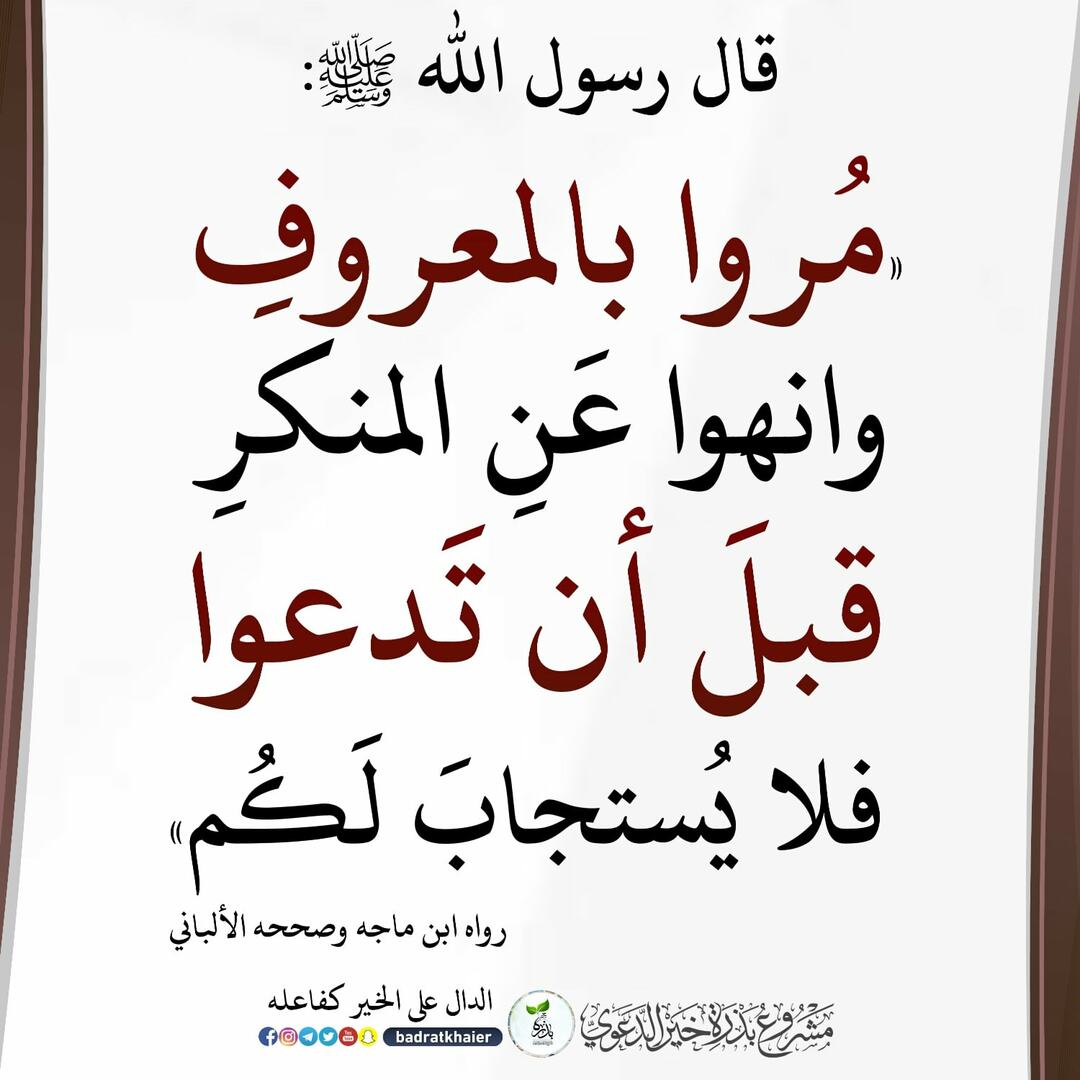 قال رسول الله ﷺ:
«مُروا بالمعروفِ
وانهوا عَنِ المنكرِ
قبلَ أن تَدعوا
فلا يُستجابَ لَكُم»
رواه ابن ماجه وصححه الألباني
مَشْرُوعُ بَذْرَةِ خَيْرٍ الدَّعَوِيّ
بذرة
الدال على الخير كفاعله
badratkhaier